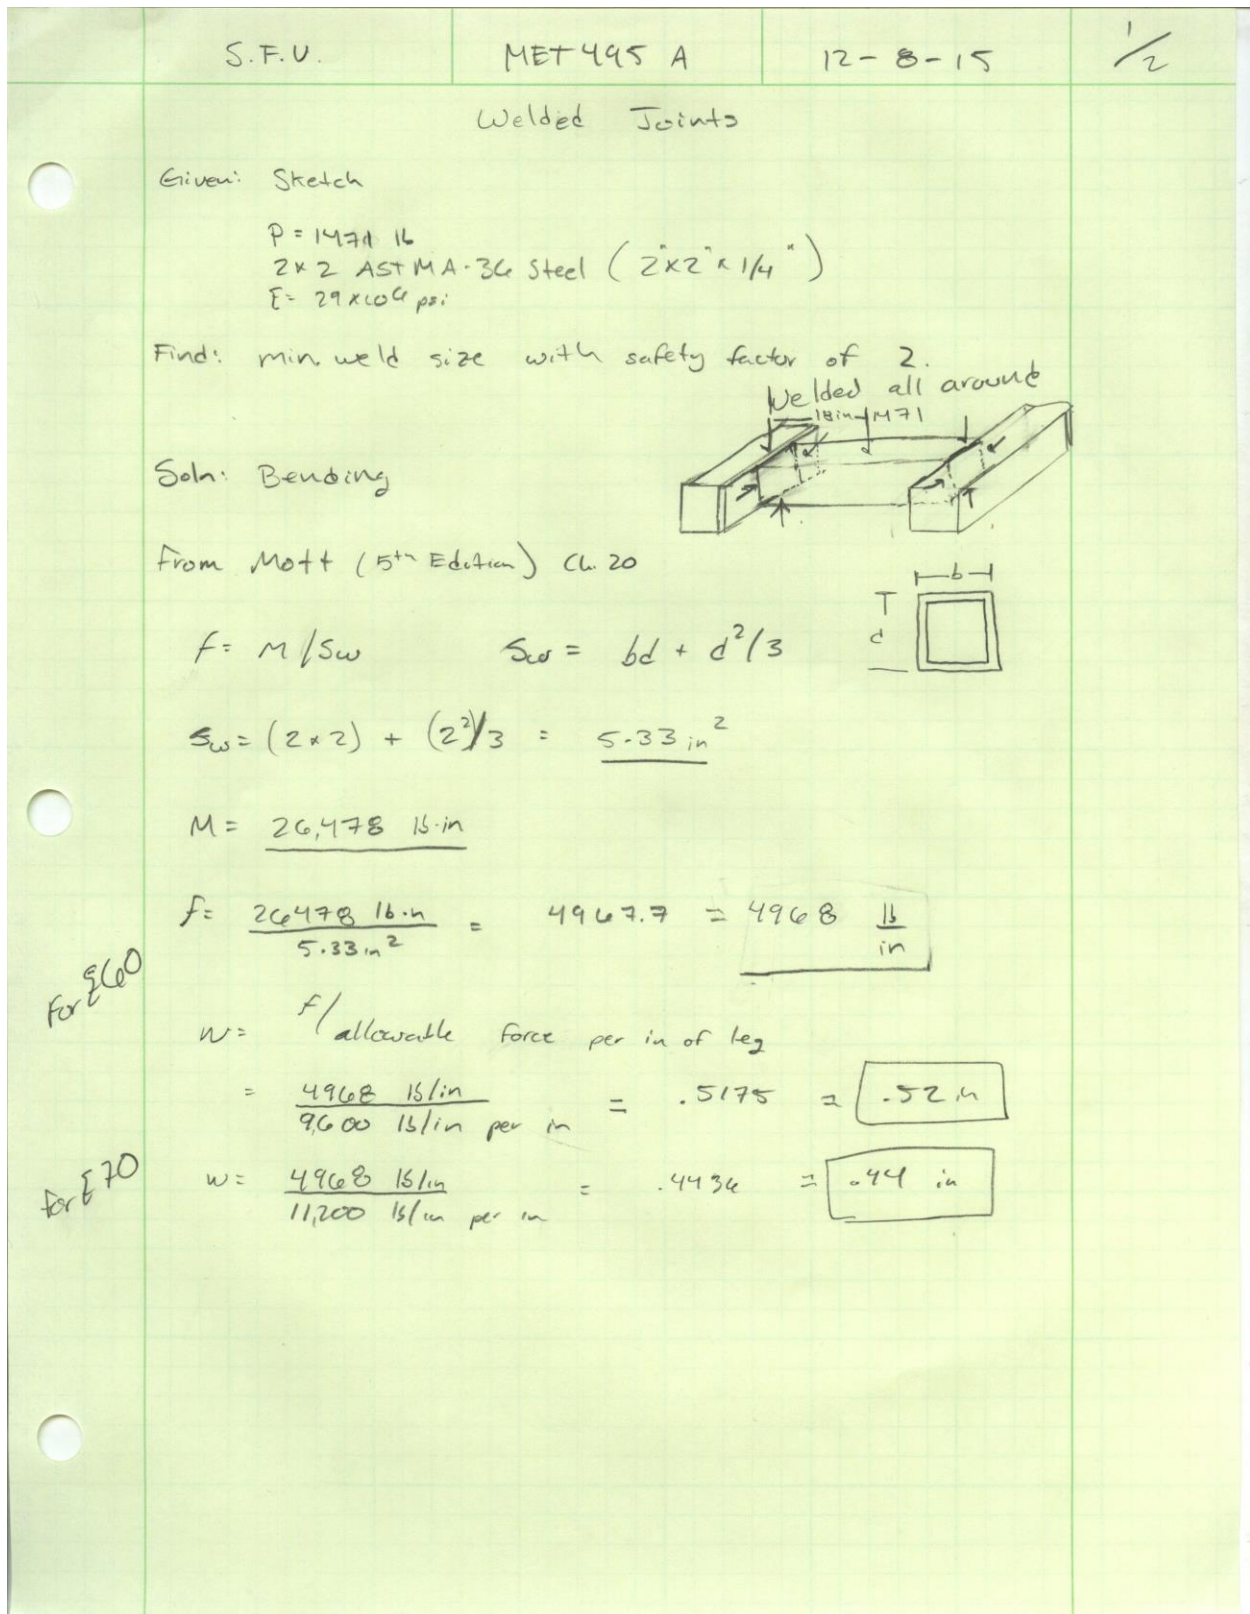 S.F.U. MET 495 A 12-8-15 1/2
Welded Joints
Given: Sketch
P = 1471 lb
2x2 ASTM A-36 Steel (2"x2"x1/4")
E= 29x10^6 psi
Find: min. weld size with safety factor of 2.
Welded all around
18in 1471
Soln: Bending
From Mott (5th Edition) Ch. 20
b
d
f= M/Sw Sw = bd + d²/3
Sw= (2x2) + (2²)/3 = 5.33 in²
M= 26,478 lb·in
f= 26478 lb·in / 5.33 in² = 4967.7 = 4968 lb/in
For E60
w= f/allowable force per in of leg
= 4968 lb/in / 9,600 lb/in per in = .5175 = .52 in
for E70
w= 4968 lb/in / 11,200 lb/in per in = .4436 = .44 in